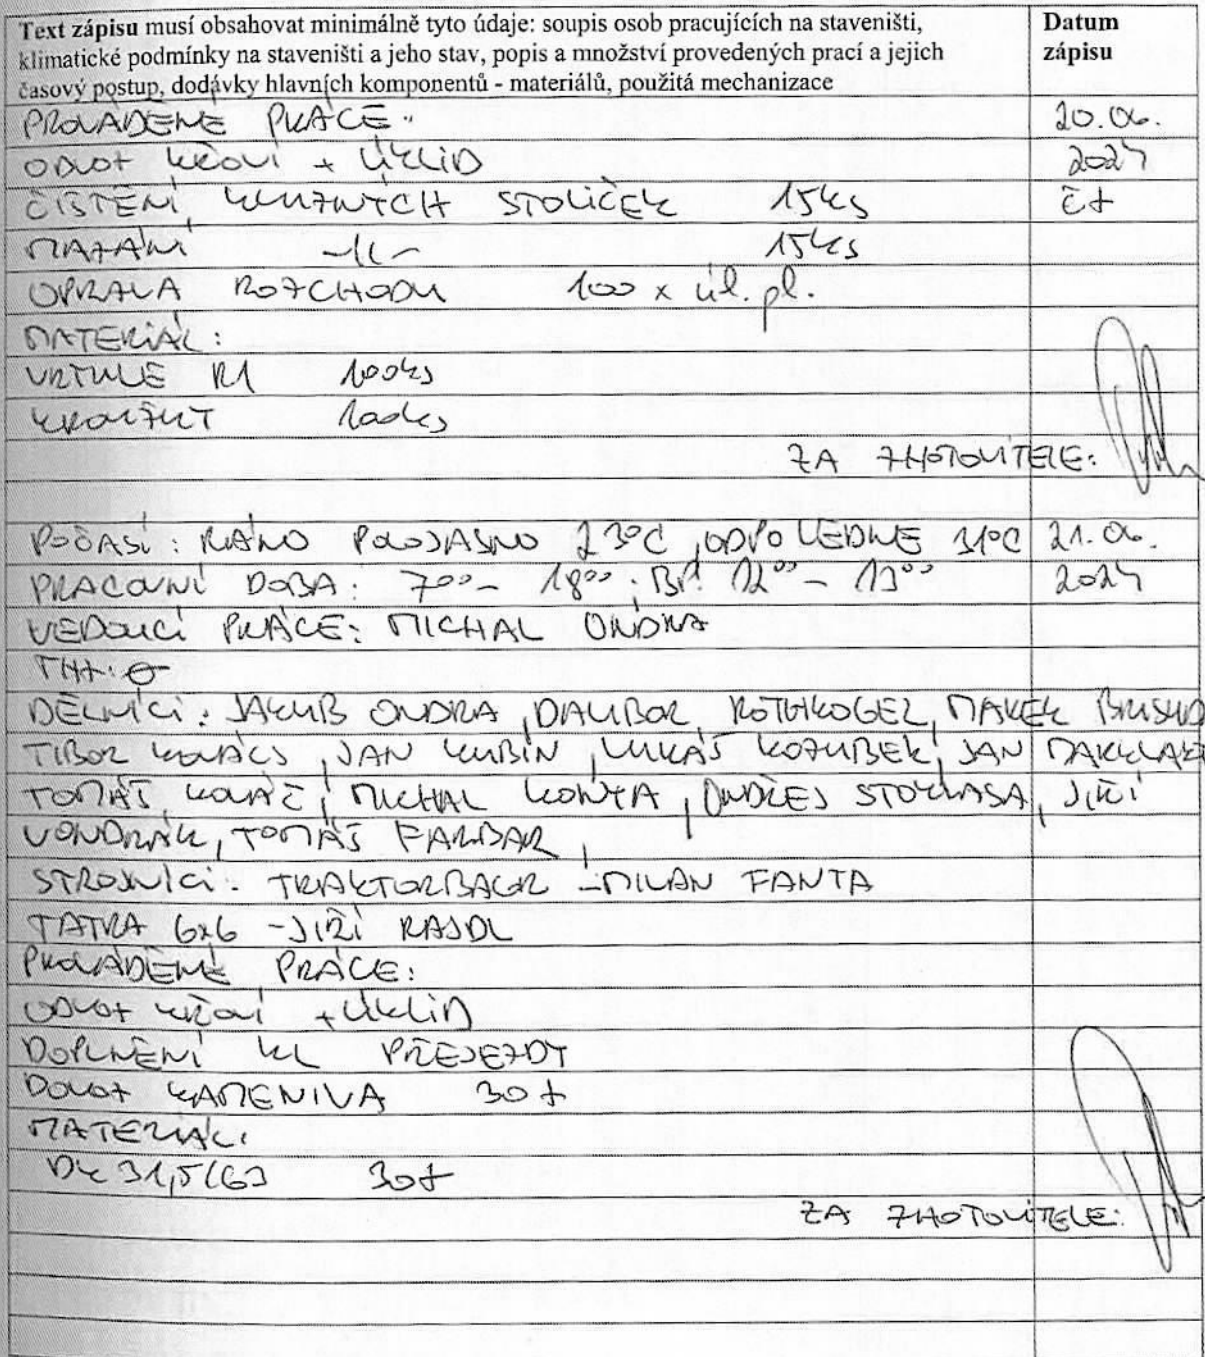 Text zápisu musí obsahovat minimálně tyto údaje: soupis osob pracujících na staveništi,
klimatické podmínky na staveništi a jeho stav, popis a množství provedených prací a jejich
časový postup, dodávky hlavních komponentů - materiálů, použitá mechanizace
Datum
zápisu
PROVÁDĚNÉ PRÁCE: 20.06.
ODVOZ KŘOVÍ + ÚKLID 2024
ČIŠTĚNÍ KLUZNÝCH STOLIČEK 15ks čt
MAZÁNÍ -||- 15ks
OPRAVA ROZCHODU 100 x úl. pl.
MATERIÁL:
VRTULE R1 100ks
KROUŽKY 100ks
ZA ZHOTOVITELE:
POČASÍ: RÁNO POLOJASNO 23°C, ODPOLEDNE 31°C 21.06.
PRACOVNÍ DOBA: 7⁰⁰ - 18⁰⁰; BP: 12⁰⁰ - 13⁰⁰ 2024
VEDOUCÍ PRÁCE: MICHAL ONDRA
DĚLNÍCI: JAKUB ONDRA, DALIBOR, MAREK
TIBOR KOVÁCS, JAN KUBÍN, LUKÁŠ KOZUBEK, JAN
TOMÁŠ KOVÁČ, MICHAL KONYA, ONDŘEJ STOKLASA, JIŘÍ
VONDRÁK, TOMÁŠ FARBAR,
STROJNÍCI: TRAKTORBAGR - MILAN FANTA
TATRA 6x6 - JIŘÍ RAJDL
PROVÁDĚNÉ PRÁCE:
ODVOZ KŘOVÍ + ÚKLID
DOPLNĚNÍ KL PŘEJEZDY
DOVOZ KAMENIVA 30t
MATERIÁL:
DK 31,5/63 30t
ZA ZHOTOVITELE: